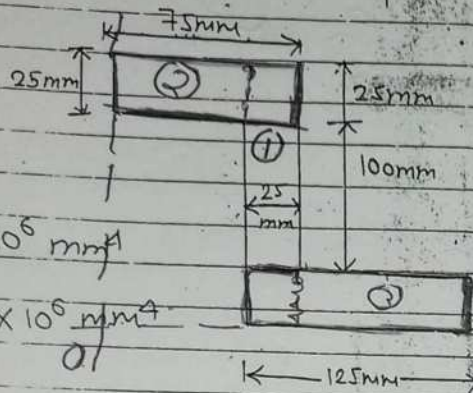 75mm
25mm
②
25mm
①
100mm
25
mm
0⁶ mm⁴
③
× 10⁶ mm⁴
0
125mm